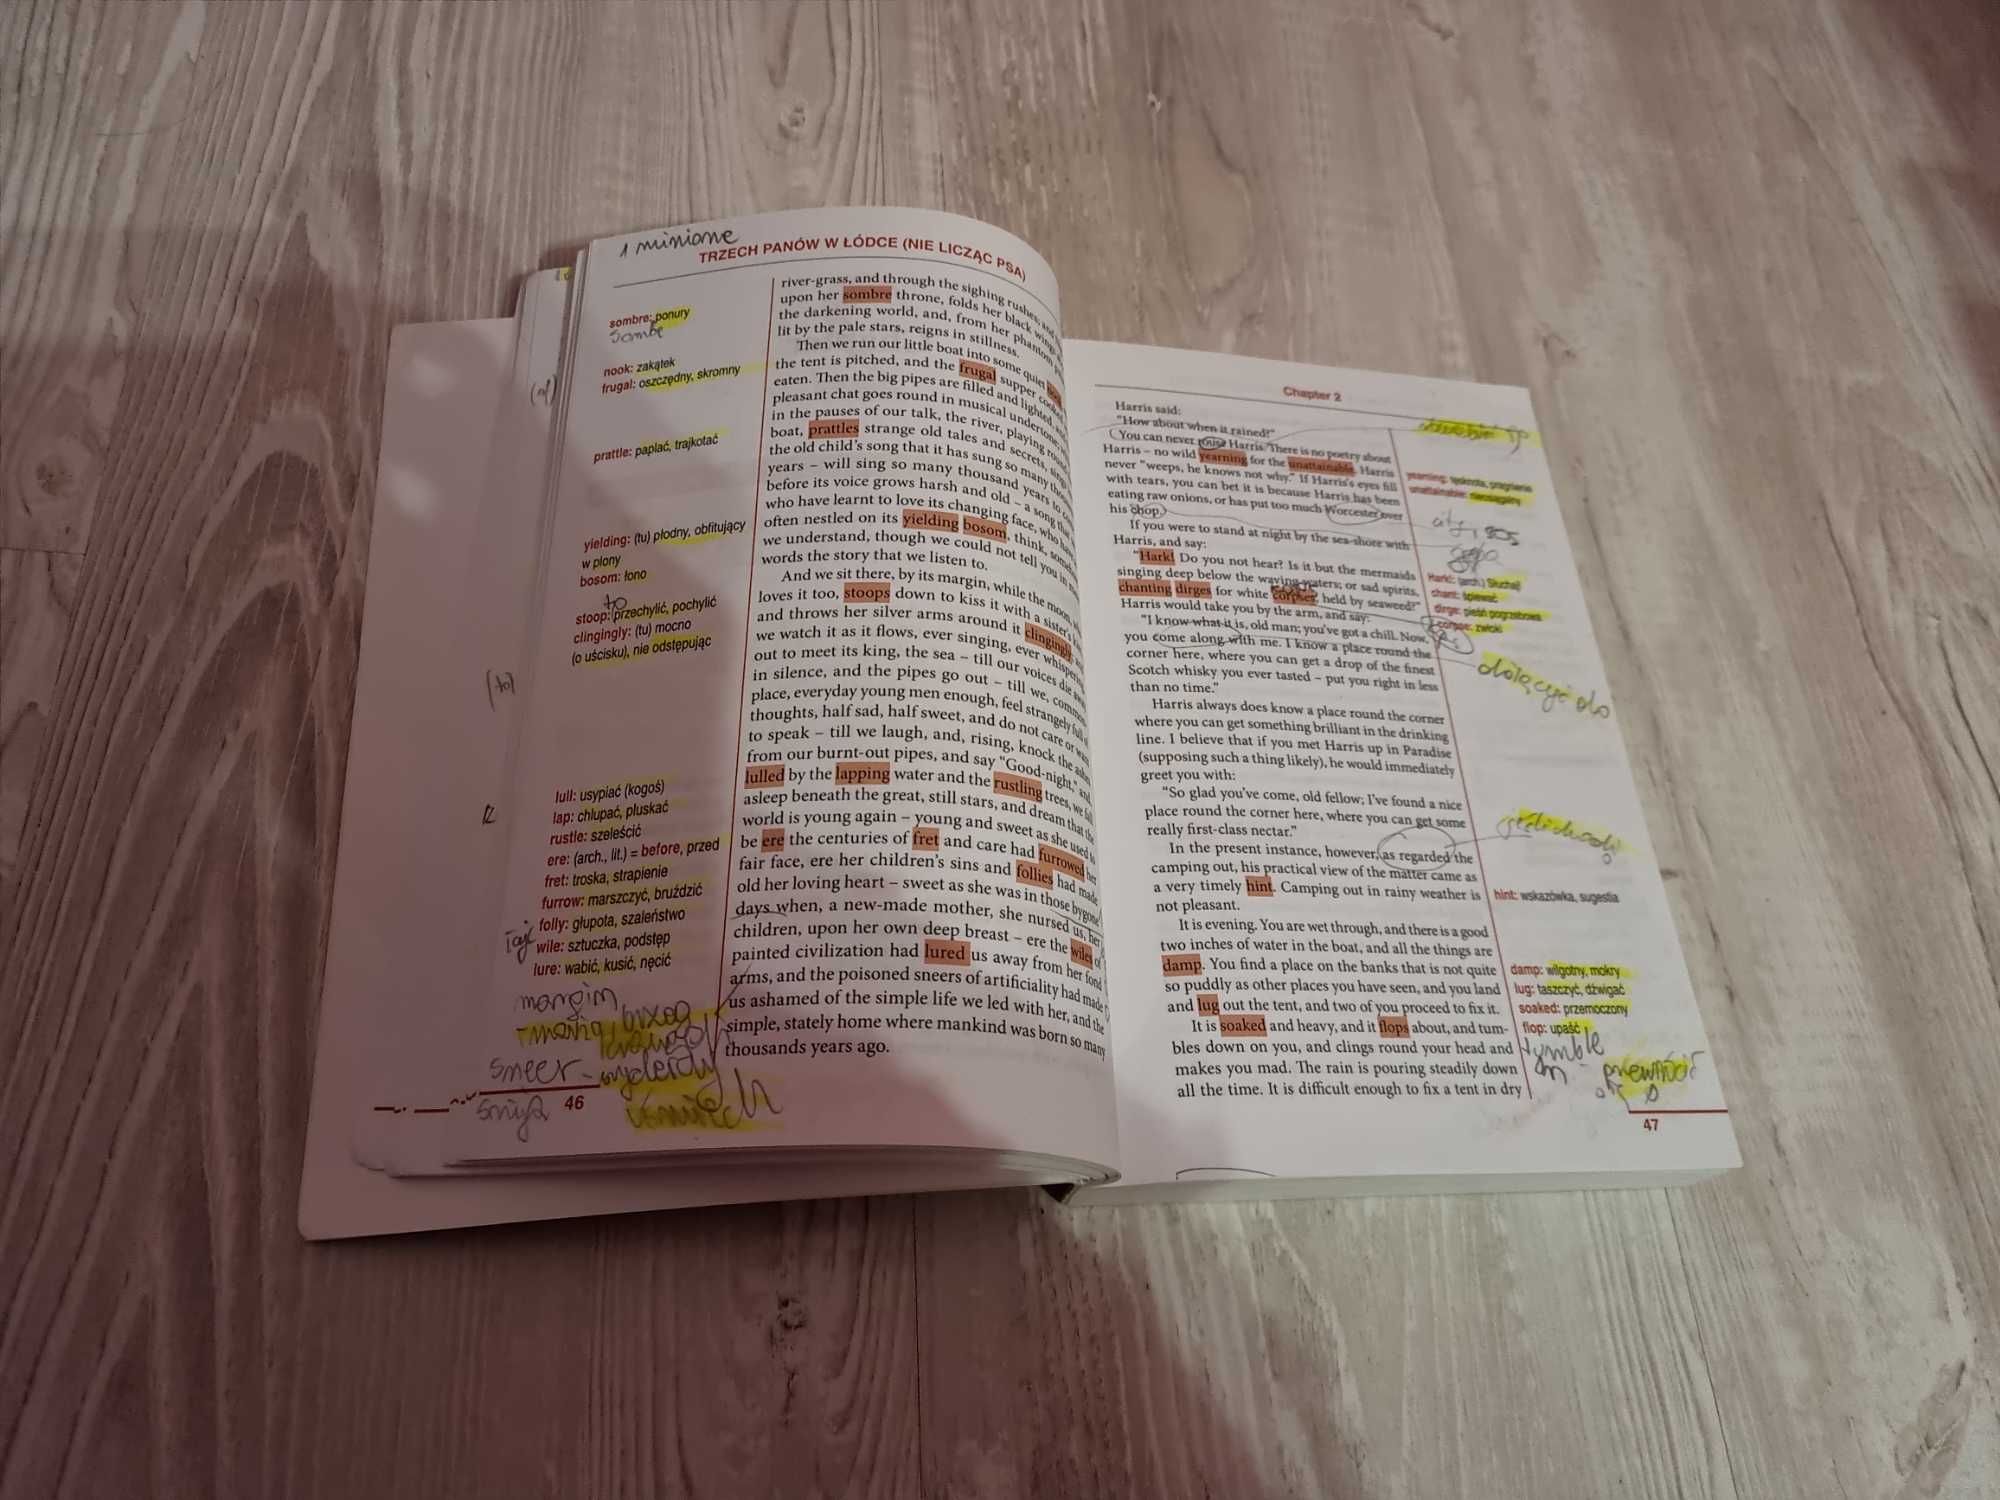 1 minione
TRZECH PANÓW W ŁÓDCE (NIE LICZĄC PSA)
sombre: ponury
nook: zakątek
frugal: oszczędny, skromny
prattle: paplać, trajkotać
yielding: (tu) płodny, obfitujący
w plony
bosom: łono
to
stoop: przechylić, pochylić
clingingly: (tu) mocno
(o uścisku), nie odstępując
(to)
lull: usypiać (kogoś)
lap: chlupać, pluskać
rustle: szeleścić
ere: (arch., lit.) = before, przed
fret: troska, strapienie
furrow: marszczyć, bruździć
folly: głupota, szaleństwo
wile: sztuczka, podstęp
lure: wabić, kusić, nęcić
margin
sneer -
46
river-grass, and through the sighing rushes; and
upon her sombre throne, folds her black wings
the darkening world, and, from her phantom
lit by the pale stars, reigns in stillness.
Then we run our little boat into some quiet
the tent is pitched, and the frugal supper cooked
eaten. Then the big pipes are filled and lighted, and
pleasant chat goes round in musical undertone;
in the pauses of our talk, the river, playing round
boat, prattles strange old tales and secrets, sings
the old child's song that it has sung so many
years – will sing so many thousand years to
before its voice grows harsh and old – a song that
who have learnt to love its changing face, who have
often nestled on its yielding bosom, think, somehow
we understand, though we could not tell you in
words the story that we listen to.
And we sit there, by its margin, while the moon, who
loves it too, stoops down to kiss it with a sister's
and throws her silver arms around it clingingly; and
we watch it as it flows, ever singing, ever whispering
out to meet its king, the sea – till our voices die away
in silence, and the pipes go out – till we, common
place, everyday young men enough, feel strangely full of
thoughts, half sad, half sweet, and do not care or want
to speak – till we laugh, and, rising, knock the ashes
from our burnt-out pipes, and say "Good-night," and,
lulled by the lapping water and the rustling trees, we fall
asleep beneath the great, still stars, and dream that the
world is young again – young and sweet as she used to
be ere the centuries of fret and care had furrowed her
fair face, ere her children's sins and follies had made
old her loving heart – sweet as she was in those bygone
days when, a new-made mother, she nursed us, her
children, upon her own deep breast – ere the wiles of
painted civilization had lured us away from her fond
arms, and the poisoned sneers of artificiality had made
us ashamed of the simple life we led with her, and the
simple, stately home where mankind was born so many
thousands years ago.
Chapter 2
Harris said:
"How about when it rained?"
You can never rouse Harris. There is no poetry about
Harris – no wild yearning for the unattainable. Harris
never "weeps, he knows not why." If Harris's eyes fill
with tears, you can bet it is because Harris has been
eating raw onions, or has put too much Worcester over
his chop.
If you were to stand at night by the sea-shore with
Harris, and say:
"Hark! Do you not hear? Is it but the mermaids
singing deep below the waving waters; or sad spirits,
chanting dirges for white corpses, held by seaweed?"
Harris would take you by the arm, and say:
"I know what it is, old man; you've got a chill. Now,
you come along with me. I know a place round the
corner here, where you can get a drop of the finest
Scotch whisky you ever tasted – put you right in less
than no time."
Harris always does know a place round the corner
where you can get something brilliant in the drinking
line. I believe that if you met Harris up in Paradise
(supposing such a thing likely), he would immediately
greet you with:
"So glad you've come, old fellow; I've found a nice
place round the corner here, where you can get some
really first-class nectar."
In the present instance, however, as regarded the
camping out, his practical view of the matter came as
a very timely hint. Camping out in rainy weather is
not pleasant.
It is evening. You are wet through, and there is a good
two inches of water in the boat, and all the things are
damp. You find a place on the banks that is not quite
so puddly as other places you have seen, and you land
and lug out the tent, and two of you proceed to fix it.
It is soaked and heavy, and it flops about, and tum-
bles down on you, and clings round your head and
makes you mad. The rain is pouring steadily down
all the time. It is difficult enough to fix a tent in dry
yearning: tęsknota, pragnienie
unattainable: nieosiągalny
Hark!: (arch.) Słuchaj!
chant: śpiewać
dirge: pieśń pogrzebowa
corpse: zwłoki
dołączyć do
hint: wskazówka, sugestia
damp: wilgotny, mokry
lug: taszczyć, dźwigać
soaked: przemoczony
flop: upaść
47